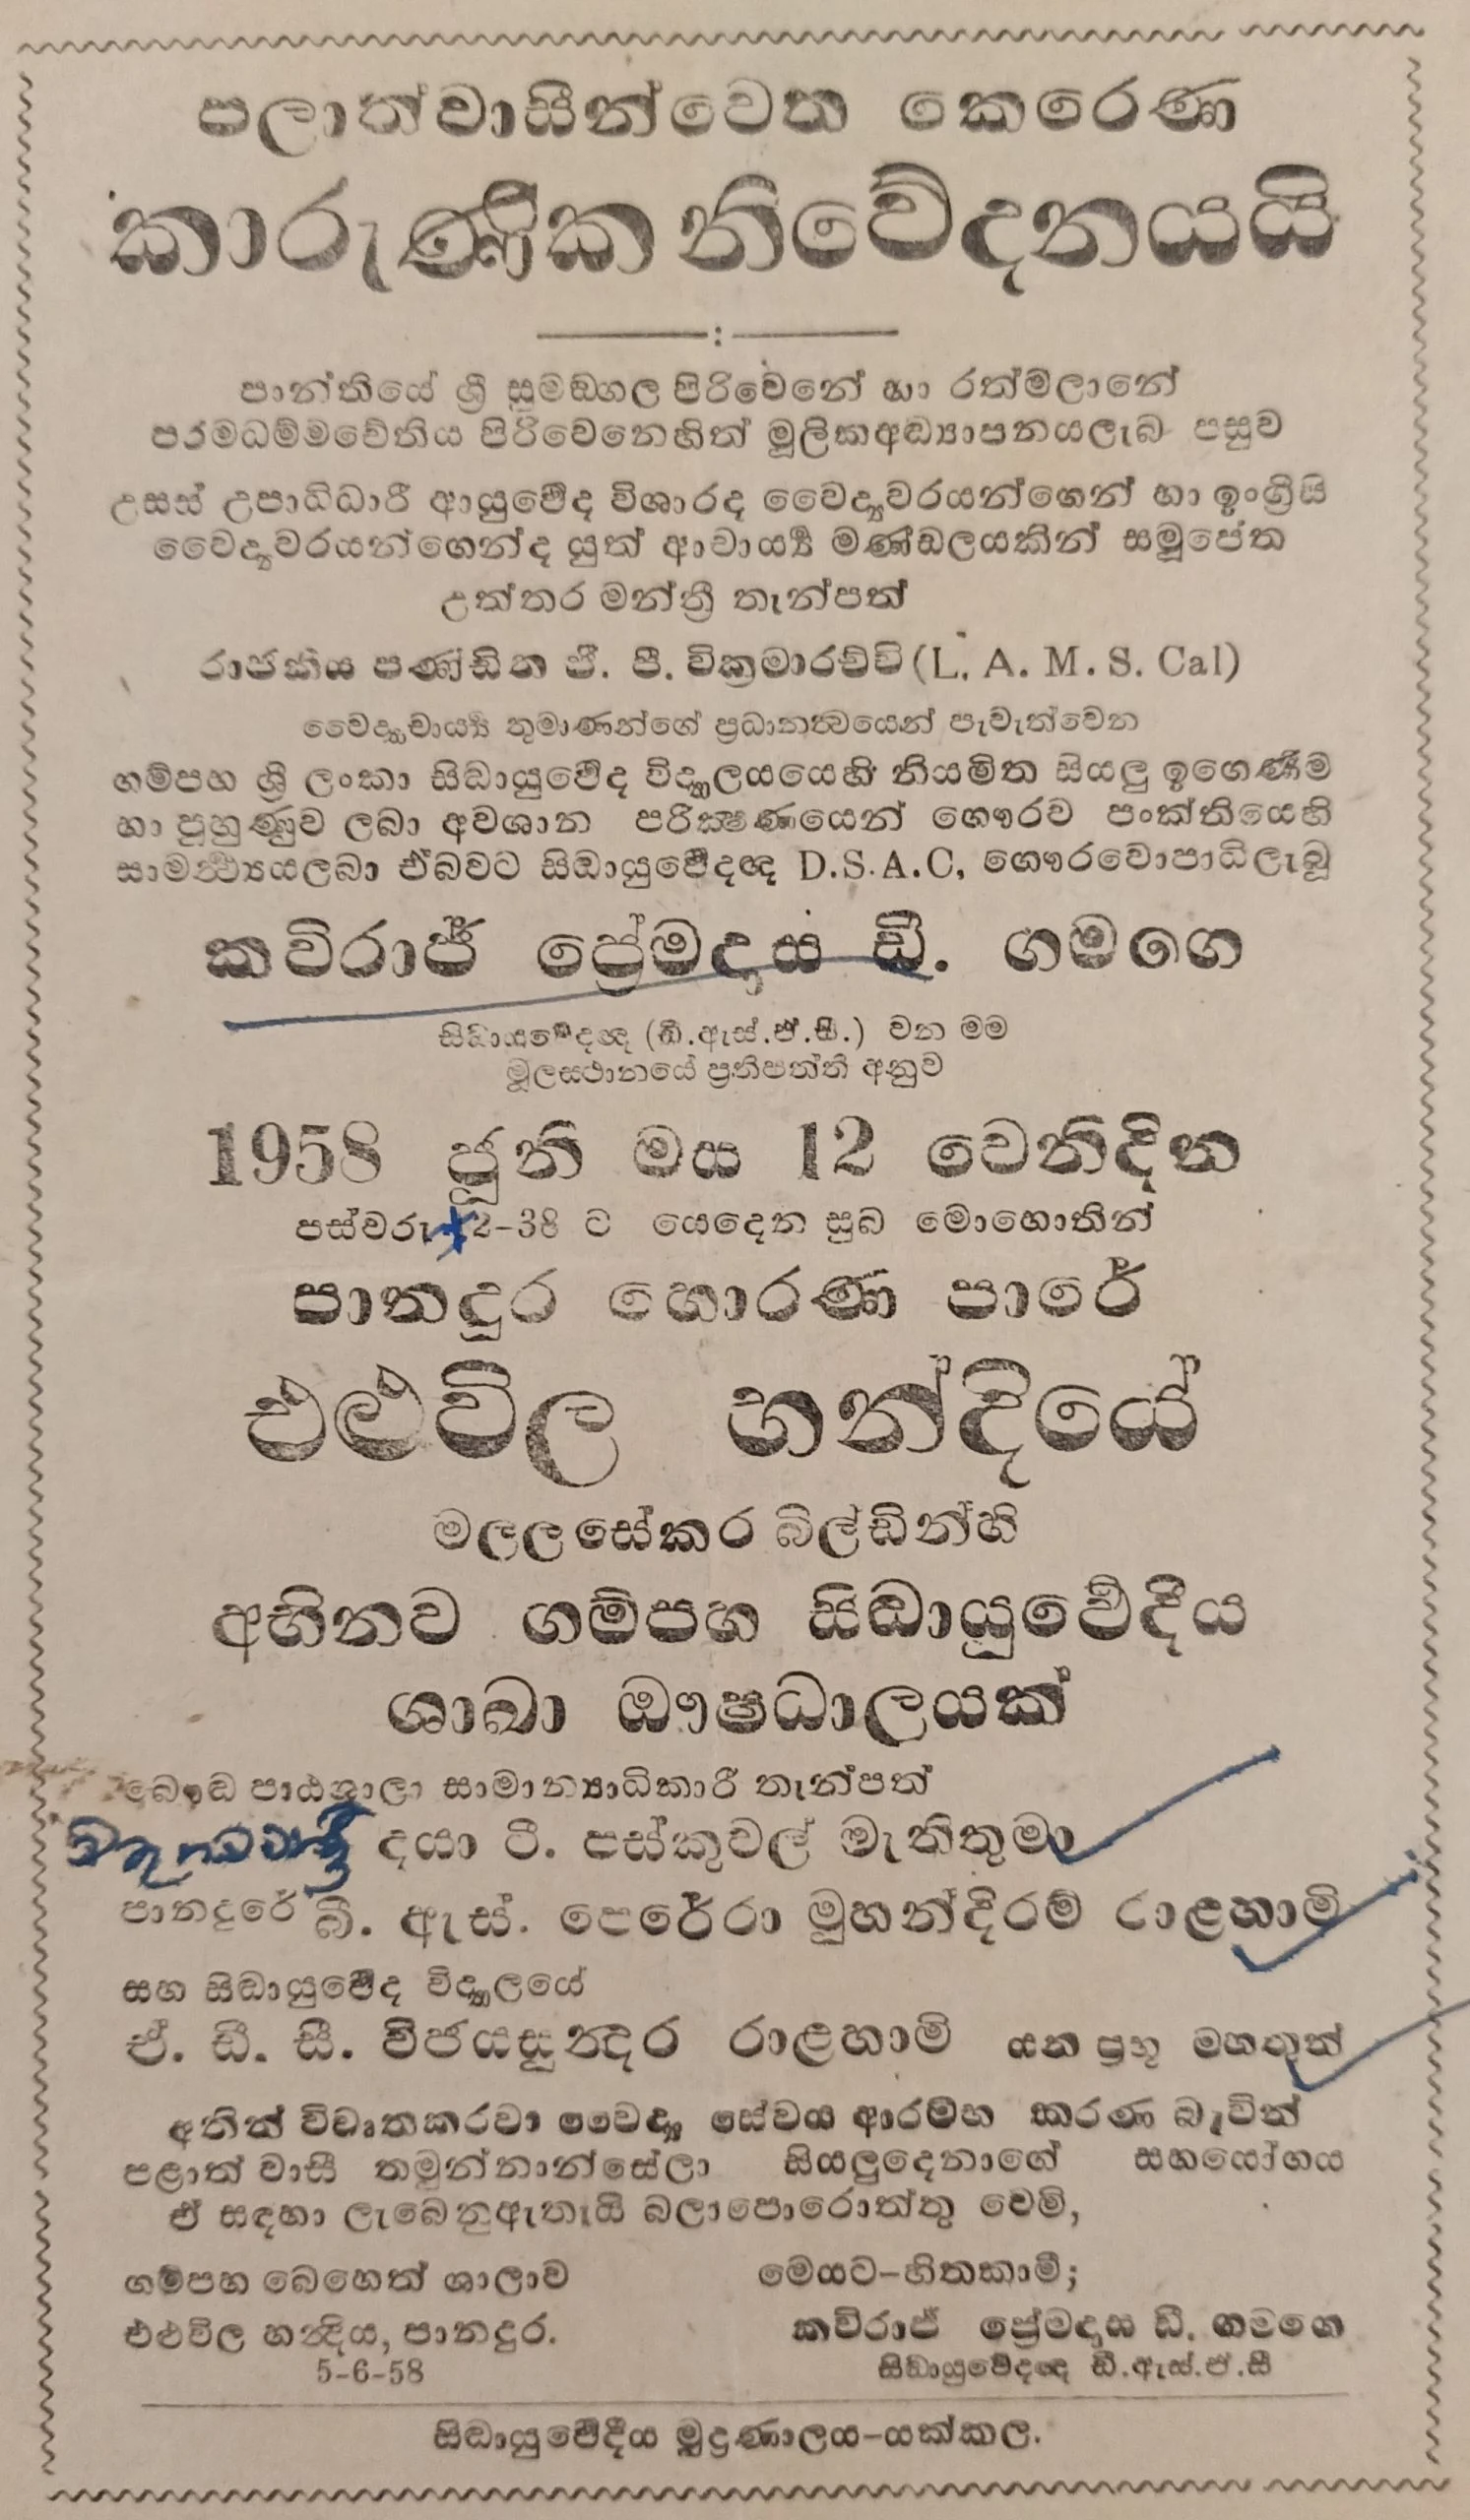 පලාත්වාසීන්වෙත කෙරෙණ
කාරුණීක නිවේදනයයි
පාන්තියේ ශ්‍රී සුමඞගල පිරිවෙනේ හා රත්මලානේ
පරමධම්මචේතිය පිරිවෙනෙහිත් මූලිකඅඬ්‍යාපනයලැබ පසුව
උසස් උපාධිධාරී ආයුර්‍වේද විශාරද වෛද්‍යවරයන්ගෙන් හා ඉංග්‍රිසි
වෛද්‍යවරයන්ගෙන්ද යුත් ආචාර්‍ය්‍ය මණ්ඩලයකින් සමූපේත
උත්තර මන්ත්‍රී තැන්පත්
රාජකීය පණ්ඩිත ජී. පී. වික්‍රමාරච්චි (L. A. M. S. Cal)
වෛද්‍යාචාර්‍ය්‍ය තුමාණන්ගේ ප්‍රධානත්‍වයෙන් පැවැත්වෙන
ගම්පහ ශ්‍රී ලංකා සිඬායුර්‍වේද විද්‍යාලයයෙහි නියමිත සියලු ඉගෙණීම
හා පුහුණුව ලබා අවශාන පරික්‍ෂණයෙන් ගෞරව පංක්තියෙහි
සාමර්‍ථ්‍යයලබා ඒබවට සිඬායුර්‍වේදඥ D.S.A.C, ගෞරවොපාධිලැබූ
කවිරාජ් ප්‍රේමදාස ඩී. ගමගෙ
සිඬායුර්‍වේදඥ (ඩී.ඇස්.ඒ.සී.) වන මම
මූලස්‍ථානයේ ප්‍රතිපත්ති අනුව
1958 ජූනි මස 12 වෙනිදින
පස්වරු 2-38 ට යෙදෙන සුබ මොහොතින්
පානදුර හොරණ පාරේ
එළුවිල හන්දියේ
මලලසේකර බිල්ඩින්හි
අභිනව ගම්පහ සිඬායුර්‍වේදීය
ශාඛා ඖෂධාලයක්
බෞඬ පාඨශාලා සාමාන්‍යාධිකාරී තැන්පත්
දයා ටී. පස්කුවල් මැතිතුමා
පානදුරේ බී. ඇස්. පෙරේරා මුහන්දිරම් රාළහාමි
සහ සිඬායුර්‍වේද විද්‍යාලයේ
ඒ. ඩී. සී. විජයසුන්‍දර රාළහාමි යන ප්‍රභූ මහතුන්
අතින් විවෘතකරවා වෛද්‍ය සේවය ආරම්භ කරණ බැවින්
පළාත් වාසී තමුන්නාන්සේලා සියලුදෙනාගේ සහයෝගය
ඒ සඳහා ලැබෙනුඇතැයි බලාපොරොත්තු වෙමි,
ගම්පහ බෙහෙත් ශාලාව
එළුවිල හන්‍දිය, පානදුර.
5-6-58
මෙයට-හිතකාමී;
කවිරාජ් ප්‍රේමදාස ඩී. ගමගෙ
සිඬායුර්‍වේදඥ ඩී.ඇස්.ඒ.සී
සිඬායුර්‍වේදීය මුද්‍රණාලය-යක්කල.